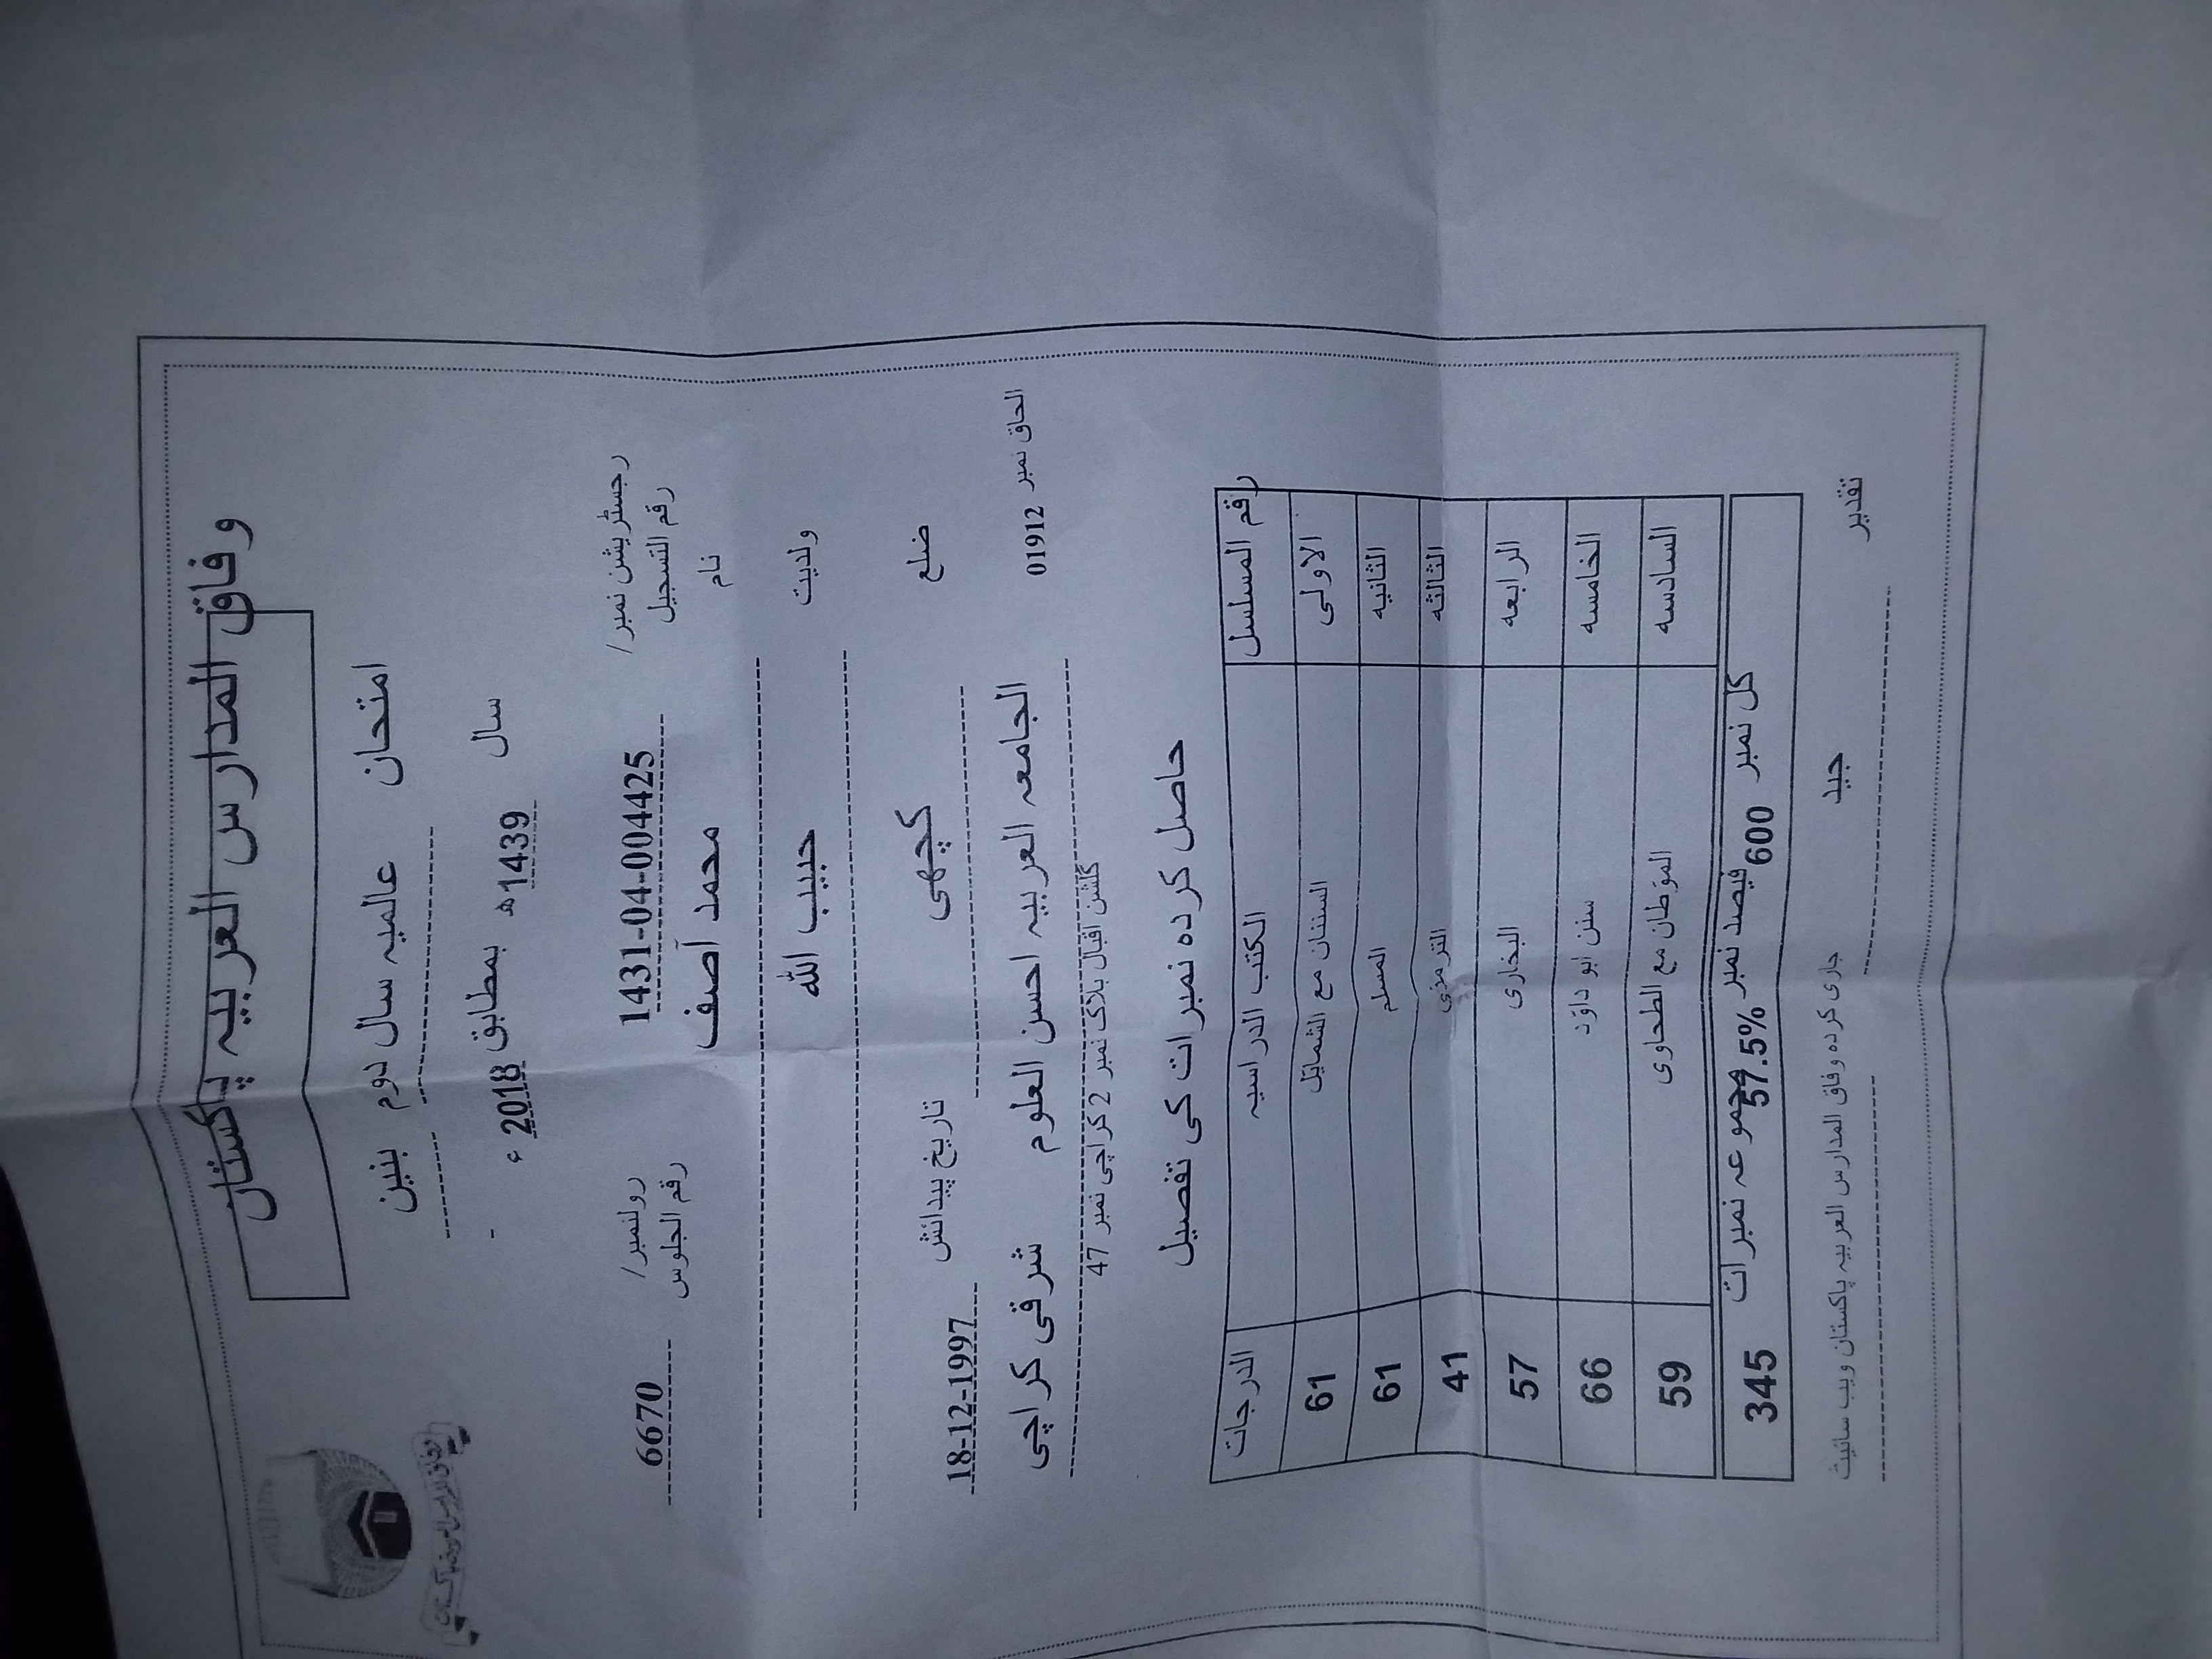 وفاق المدارس العربیہ پاکستان
امتحان عالمیہ سال دوم بنین
سال 1439 ھ بمطابق 2018 ء -
رجسٹریشن نمبر/ 1431-04-004425 رولنمبر/ 6670
رقم التسجیل رقم الجلوس
نام محمد آصف
ولدیت حبیب اللہ
ضلع کچھی تاریخ پیدائش 18-12-1997
الحاق نمبر 01912 الجامعہ العربیہ احسن العلوم شرقی کراچی
گلشن اقبال بلاک نمبر 2 کراچی نمبر 47
حاصل کردہ نمبرات کی تفصیل
رقم المسلسل الکتب الدراسیہ الدرجات
الاولی السننان مع الشمایٔل 61
الثانیہ المسلم 61
الثالثہ الترمذی 41
الرابعہ البخاری 57
الخامسہ سنن ابو داؤد 66
السادسہ المؤطان مع الطحاوی 59
کل نمبر 600 فیصد نمبر 57.5% مجموعہ نمبرات 345
تقدیر جید جاری کردہ وفاق المدارس العربیہ پاکستان ویب سائیٹ